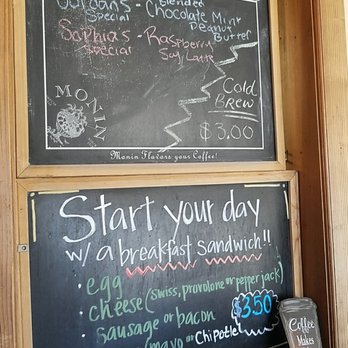 Jordan's - Blended
Special Chocolate Mint
Peanut
Butter
Sophia's - Raspberry
Special Soy Latte
MONIN
Cold
Brew
$3.00
Monin Flavors your Coffee!
Start your day
w/ a breakfast sandwich!!
• egg
• cheese (swiss, provolone or pepper jack)
• sausage or bacon
$3.50
(mayo or Chipotle)
Coffee
Makes